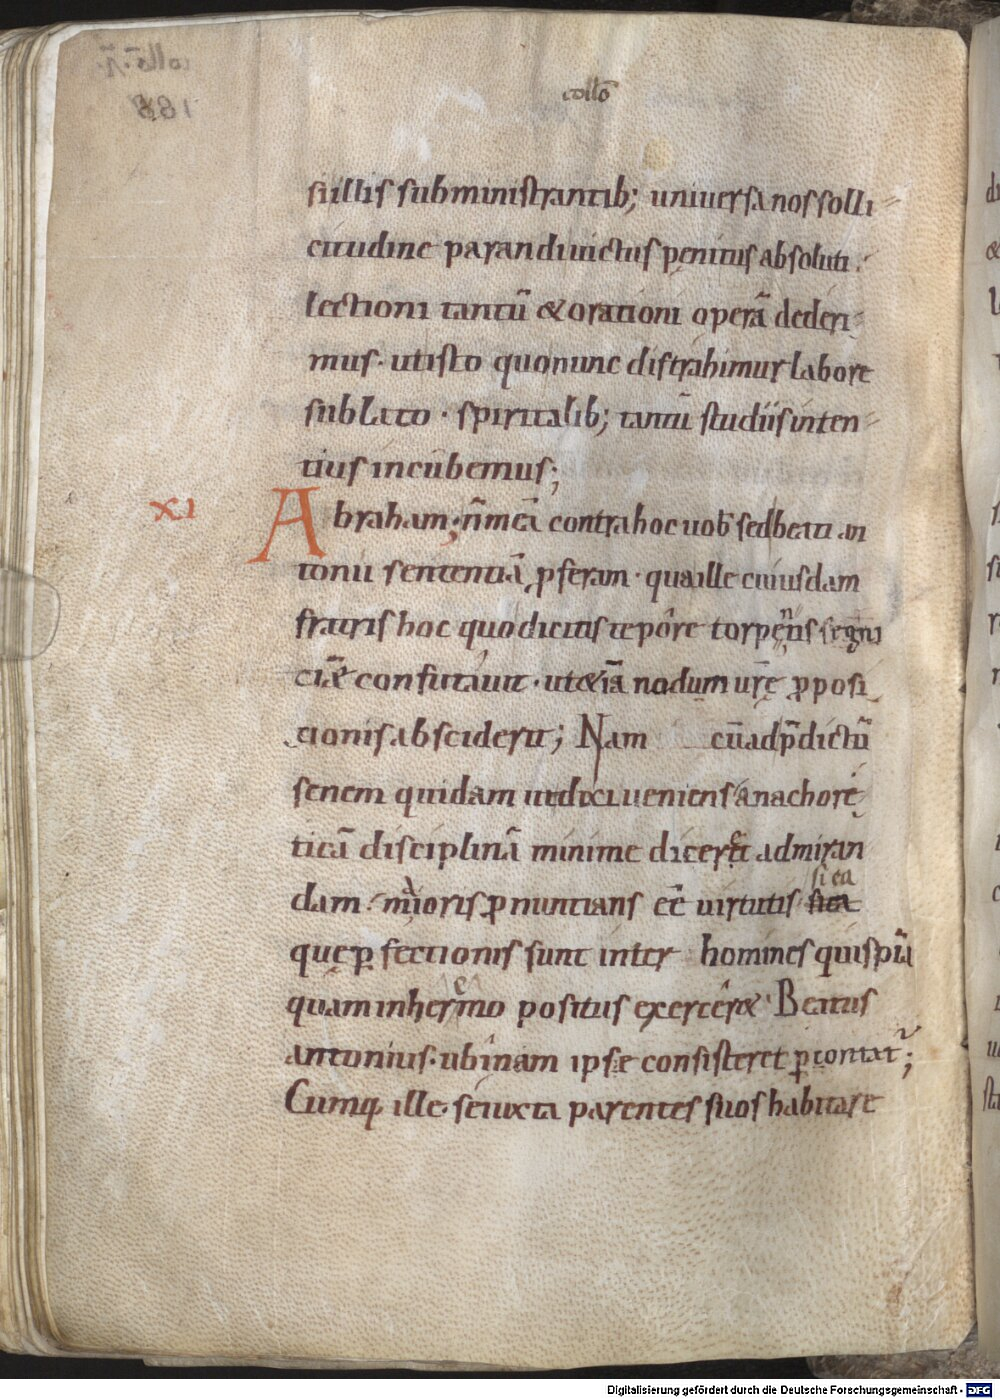 collō
si illis subministrantib; universa nos solli
citudine parandi uictus penitus absoluti.
lectioni tantū & orationi operā dederi
mus· ut isto quo nunc distrahimur labore
sublato · spiritalib; tantū studiis inten
tius incūbemus;
XI
Abraham; n̄ meā contra hoc uob̄ sed beati an
tonii sententiā ꝓferam · qua ille cuiusdam
fratris hoc quo dicitis tepōre torpentis segni
ciā confutauit · ut & iā nodum ur̄ę ꝓposi
tionis absciderit; Nam cū ad p̄dictū
senem quidam ueniens anachore
ticā disciplinā minime diceret admiran
dam · maioris ꝓnuntians eē̄ uirtutis si ea
quę ꝑfectionis sunt inter homines quispiā
quam in heremo positus exercer& · Beatus
antonius · ubinam ipse consisteret ꝑcontat̄;
Cumq; ille · se iuxta parentes suos habitare
Digitalisierung gefördert durch die Deutsche Forschungsgemeinschaft - DFG